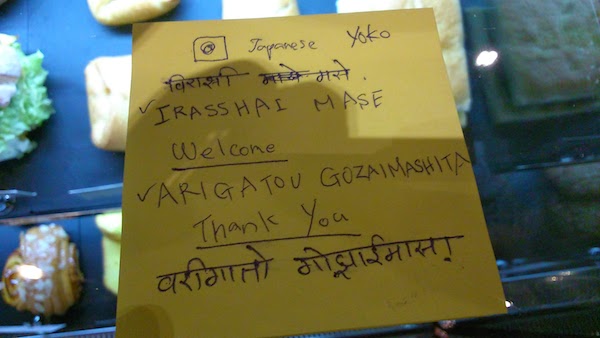 Japanese Yoko
मसे .
✓ IRASSHAI MASE
Welcome
✓ ARIGATOU GOZAIMASHITA
Thank You
वरीगातो गोझाईमास!